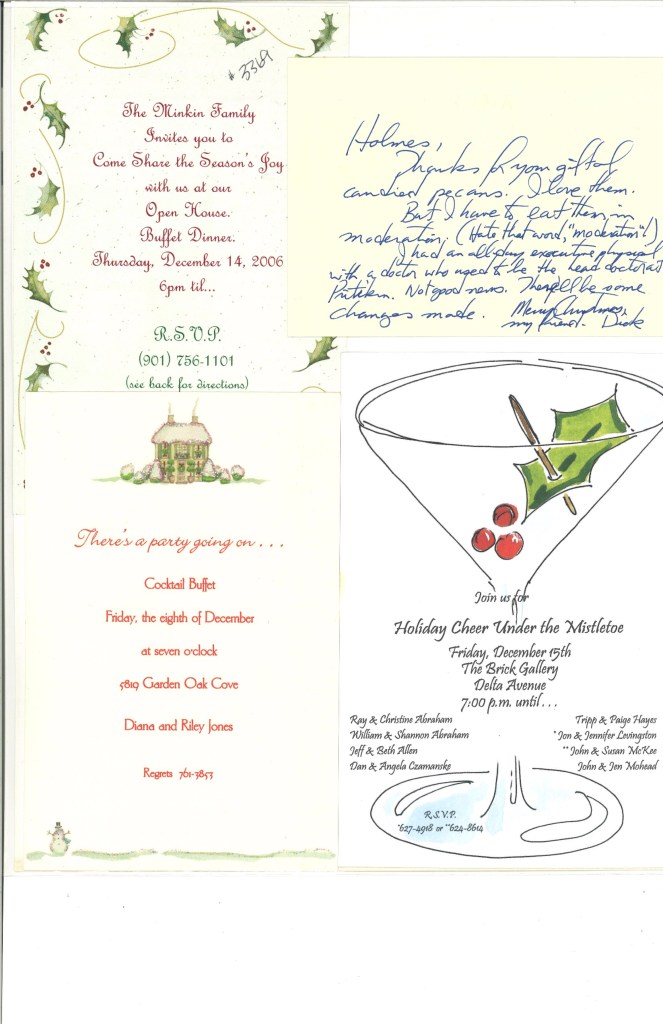 # 3369
The Minkin Family
Invites you to
Come Share the Season's Joy
with us at our
Open House.
Buffet Dinner.
Thursday, December 14, 2006
6pm til...
R.S.V.P.
(901) 756-1101
(see back for directions)
Holmes,
Thanks for your gift of
candied pecans. I love them.
But I have to eat them in
moderation. (Hate that word, "moderation"!)
I had an all-day executive physical
with a doctor who used to be the head doctor at
Pritikin. Not good news. There'll be some
changes made. Merry Christmas,
my friend. Dick
There's a party going on . . .
Cocktail Buffet
Friday, the eighth of December
at seven o'clock
5819 Garden Oak Cove
Diana and Riley Jones
Regrets 761-3853
Join us for
Holiday Cheer Under the Mistletoe
Friday, December 15th
The Brick Gallery
Delta Avenue
7:00 p.m. until . . .
Ray & Christine Abraham
William & Shannon Abraham
Jeff & Beth Allen
Dan & Angela Czamanske
Tripp & Paige Hayes
*Jon & Jennifer Levingston
**John & Susan McKee
John & Jen Mohead
R.S.V.P.
*627-4918 or **624-8614